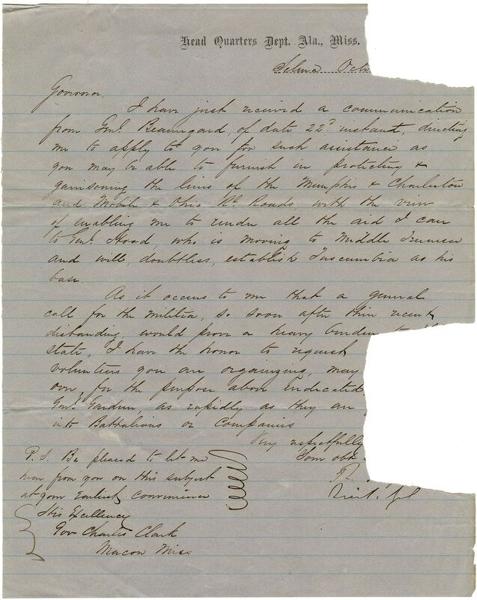 Head Quarters Dept. Ala., Miss.
Selma Octo
Governor
I have just received a communication
from Genl Beauregard, of date 22d instant, directing
me to apply to you for such assistance as
you may be able to furnish in protecting &
garrisoning the lines of the Memphis & Charleston
and Mobile & Ohio Rl Roads with the view
of enabling me to render all the aid I can
to Genl Hood, who is moving to Middle Tennessee
and will, doubtless, establish Tuscumbia as his
base
As it occurs to me that a general
call for the militia, so soon after their recent
disbanding, would prove a heavy burden to
State, I have the honor to request
volunteers you are organizing, may
over, for the purpose above indicated
Genl Gardner, as rapidly as they are
into Battalions or Companies
Very respectfully
Your obt
R.
Lieut. Gl
P.S. Be pleased to let me
hear from you on this subject
at your earliest convenience
His Excellency
Gov Charles Clark
Macon Miss